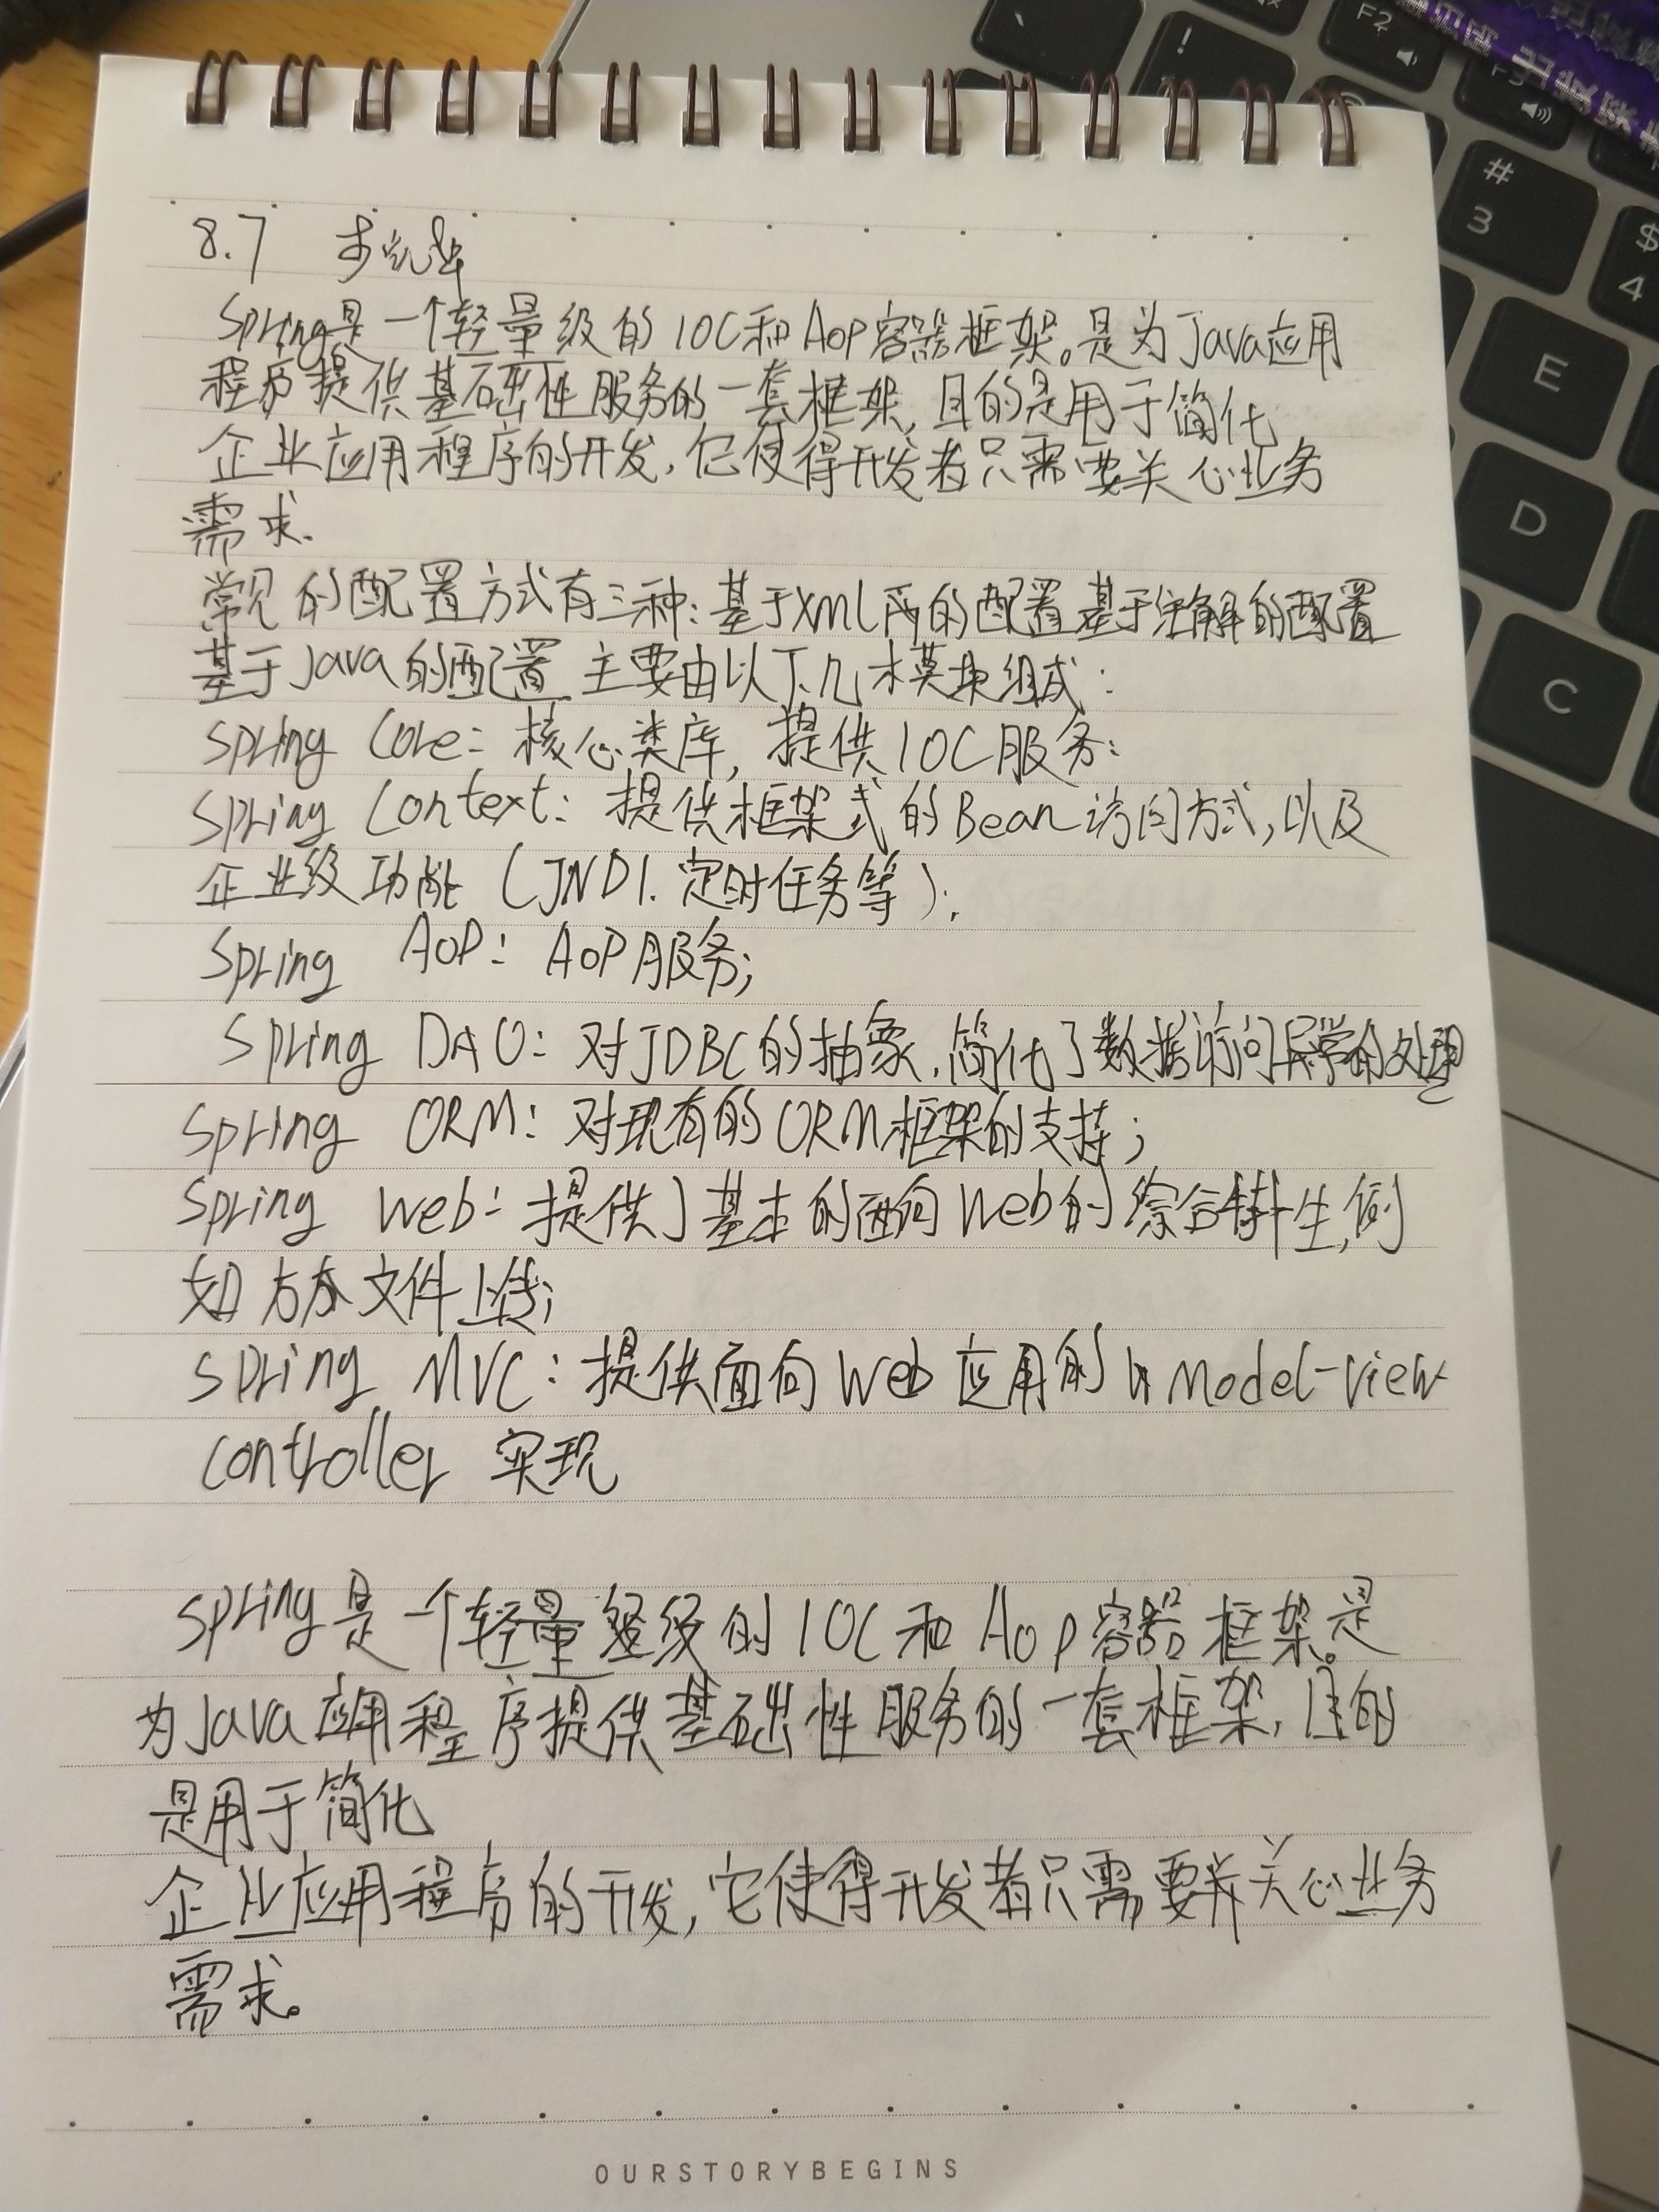 8.7
Spring是一个轻量级的IOC和AOP容器框架。是为Java应用
程序提供基础性服务的一套框架,目的是用于简化
企业应用程序的开发,它使得开发者只需要关心业务
需求.
常见的配置方式有三种:基于XML的配置 基于注解的配置
基于Java的配置 主要由以下几个模块组成:
Spring Core: 核心类库, 提供IOC服务:
Spring Context: 提供框架式的Bean访问方式,以及
企业级功能 (JNDI. 定时任务等);
Spring AOP: AOP服务;
Spring DAO: 对JDBC的抽象,简化了数据访问异常的处理
Spring ORM: 对现有的ORM框架的支持;
Spring Web: 提供了基本的面向Web的综合特性,例
如方文件上传;
Spring MVC: 提供面向Web应用的Model-View
Controller 实现
Spring是一个轻量级的IOC和AOP容器框架。是
为Java应用程序提供基础性服务的一套框架,目的
是用于简化
企业应用程序的开发,它使得开发者只需要关心业务
需求。
OURSTORYBEGINS
F2
!
#
3
$
4
E
D
C